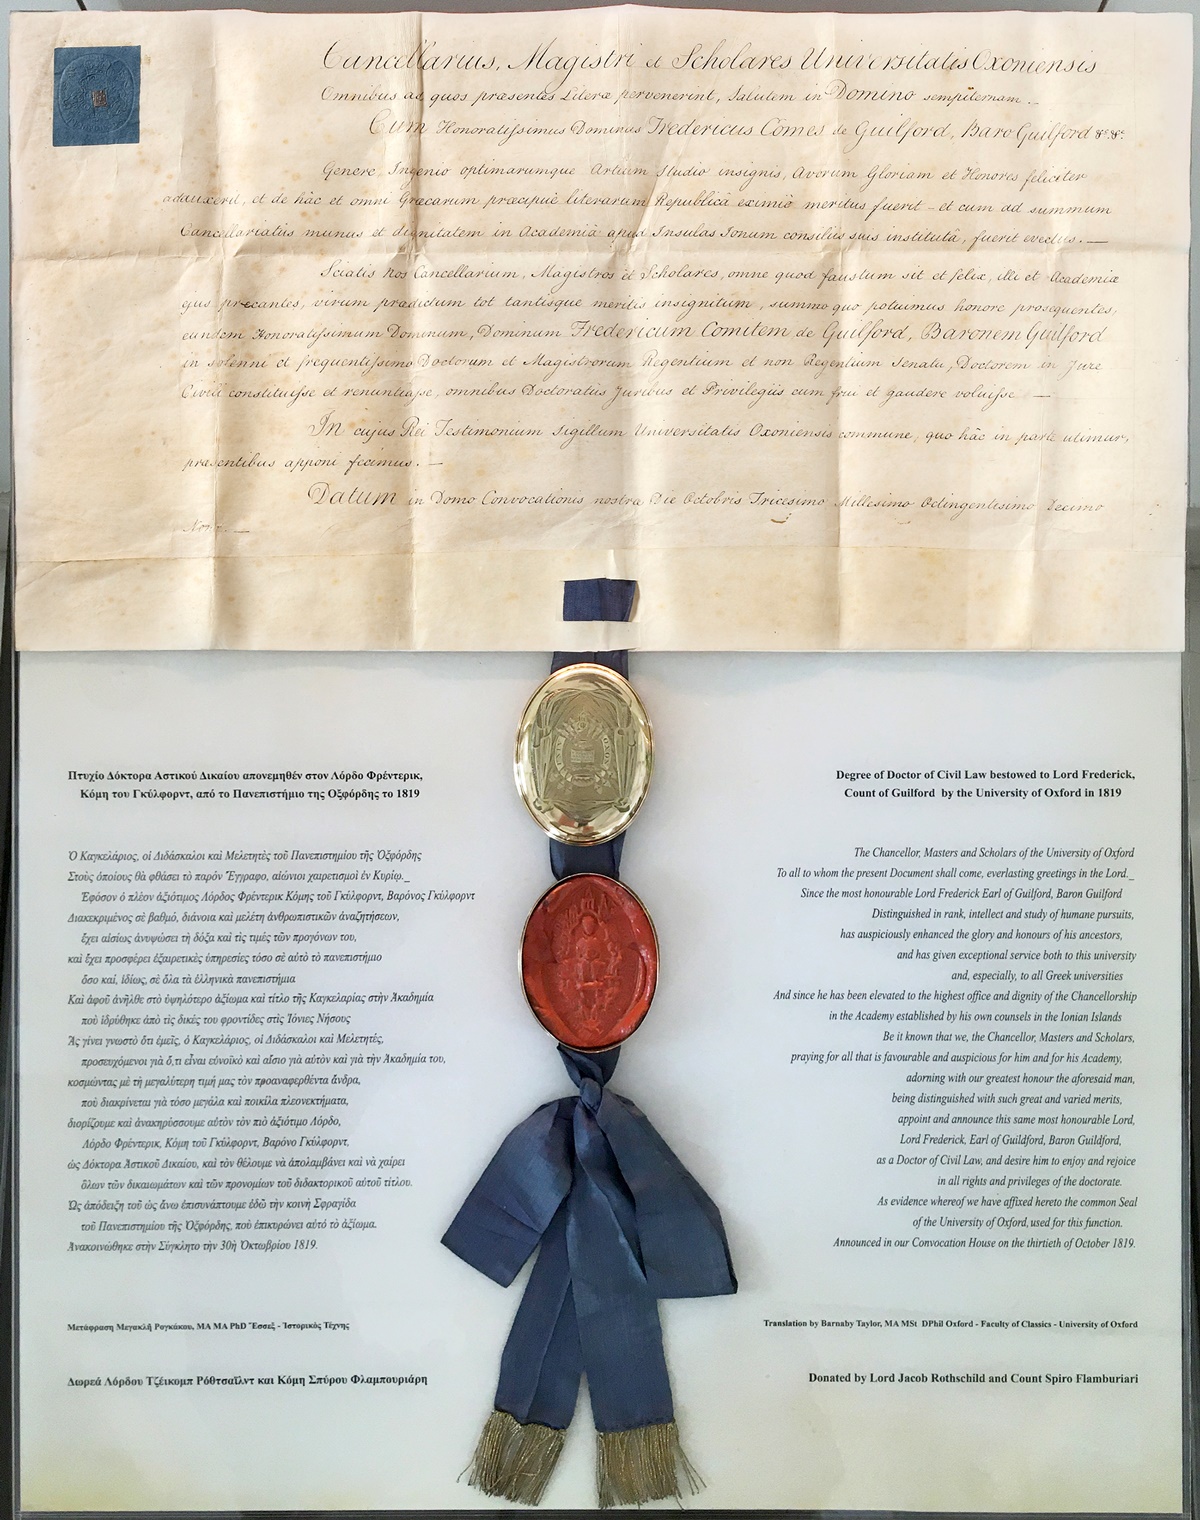 Cancellarius, Magistri et Scholares Universitatis Oxoniensis
Omnibus ad quos præsentes Literæ pervenerint, Salutem in Domino sempiternam. _
Cum Honoratissimus Dominus Fredericus Comes de Guilford, Baro Guilford &c. &c.
Genere Ingenio optimarumque Artium Studio insignis, Avorum Gloriam et Honores feliciter
adauxerit, et de hâc et omni Græcarum præcipuè literarum Republicâ eximiè meritus fuerit – et cum ad summum
Cancellariatûs munus et dignitatem in Academiâ apud Insulas Ionum consiliis suis institutâ, fuerit evectus. —
Sciatis nos Cancellarium, Magistros et Scholares, omne quod faustum sit et felix, illi et Academiæ
ejus precantes, virum prædictum tot tantisque meritis insignitum, summo quo potuimus honore prosequentes,
eundem Honoratissimum Dominum, Dominum Fredericum Comitem de Guilford, Baronem Guilford
in solenni et frequentissimo Doctorum et Magistrorum Regentium et non Regentium Senatu, Doctorem in Jure
Civili constituisse et renuntiasse, omnibus Doctoratûs Juribus et Privilegiis eum frui et gaudere voluisse —
In cujus Rei Testimonium Sigillum Universitatis Oxoniensis commune, quo hâc in parte utimur,
præsentibus apponi fecimus. —
Datum in Domo Convocationis nostræ Die Octobris Tricesimo Millesimo Octingentesimo Decimo
Πτυχίο Δόκτορα Αστικού Δικαίου απονεμηθέν στον Λόρδο Φρέντερικ,
Κόμη του Γκύλφορντ, από το Πανεπιστήμιο της Οξφόρδης το 1819
Ὁ Καγκελάριος, οἱ Διδάσκαλοι καὶ Μελετητὲς τοῦ Πανεπιστημίου τῆς Ὀξφόρδης
Στοὺς ὁποίους θὰ φθάσει τὸ παρὸν Ἔγγραφο, αἰώνιοι χαιρετισμοὶ ἐν Κυρίῳ._
Ἐφόσον ὁ πλέον ἀξιότιμος Λόρδος Φρέντερικ Κόμης τοῦ Γκύλφορντ, Βαρόνος Γκύλφορντ
Διακεκριμένος σὲ βαθμό, διάνοια καὶ μελέτη ἀνθρωπιστικῶν ἀναζητήσεων,
ἔχει αἰσίως ἀνυψώσει τὴ δόξα καὶ τὶς τιμές τῶν προγόνων του,
καὶ ἔχει προσφέρει ἐξαιρετικὲς ὑπηρεσίες τόσο σὲ αὐτὸ τὸ πανεπιστήμιο
ὅσο καί, ἰδίως, σὲ ὅλα τὰ ἑλληνικὰ πανεπιστήμια
Καὶ ἀφοῦ ἀνῆλθε στὸ ὑψηλότερο ἀξίωμα καὶ τίτλο τῆς Καγκελαρίας στὴν Ἀκαδημία
ποὺ ἱδρύθηκε ἀπὸ τὶς δικές του φροντίδες στὶς Ἰόνιες Νήσους
Ἂς γίνει γνωστὸ ὅτι ἐμεῖς, ὁ Καγκελάριος, οἱ Διδάσκαλοι καὶ Μελετητές,
προσευχόμενοι γιὰ ὅ,τι εἶναι εὐνοϊκὸ καὶ αἴσιο γιὰ αὐτὸν καὶ γιὰ τὴν Ἀκαδημία του,
κοσμώντας μὲ τὴ μεγαλύτερη τιμή μας τὸν προαναφερθέντα ἄνδρα,
ποὺ διακρίνεται γιὰ τόσο μεγάλα καὶ ποικίλα πλεονεκτήματα,
διορίζουμε καὶ ἀνακηρύσσουμε αὐτὸν τὸν πιὸ ἀξιότιμο Λόρδο,
Λόρδο Φρέντερικ, Κόμη τοῦ Γκύλφορντ, Βαρόνο Γκύλφορντ,
ὡς Δόκτορα Ἀστικοῦ Δικαίου, καὶ τὸν θέλουμε νὰ ἀπολαμβάνει καὶ νὰ χαίρει
ὅλων τῶν δικαιωμάτων καὶ τῶν προνομίων τοῦ διδακτορικοῦ αὐτοῦ τίτλου.
Ὡς ἀπόδειξη τοῦ ὡς ἄνω ἐπισυνάπτουμε ἐδῶ τὴν κοινὴ Σφραγίδα
τοῦ Πανεπιστημίου τῆς Ὀξφόρδης, ποὺ ἐπικυρώνει αὐτὸ τὸ ἀξίωμα.
Ἀνακοινώθηκε στὴν Σύγκλητο τὴν 30ὴ Ὀκτωβρίου 1819.
Μετάφραση Μεγακλῆ Ρογκάκου, MA MA PhD Ἔσσεξ - Ἱστορικὸς Τέχνης
Δωρεά Λόρδου Τζέικομπ Ρόθτσαϊλντ και Κόμη Σπύρου Φλαμπουριάρη
Degree of Doctor of Civil Law bestowed to Lord Frederick,
Count of Guilford by the University of Oxford in 1819
The Chancellor, Masters and Scholars of the University of Oxford
To all to whom the present Document shall come, everlasting greetings in the Lord._
Since the most honourable Lord Frederick Earl of Guilford, Baron Guilford
Distinguished in rank, intellect and study of humane pursuits,
has auspiciously enhanced the glory and honours of his ancestors,
and has given exceptional service both to this university
and, especially, to all Greek universities
And since he has been elevated to the highest office and dignity of the Chancellorship
in the Academy established by his own counsels in the Ionian Islands
Be it known that we, the Chancellor, Masters and Scholars,
praying for all that is favourable and auspicious for him and for his Academy,
adorning with our greatest honour the aforesaid man,
being distinguished with such great and varied merits,
appoint and announce this same most honourable Lord,
Lord Frederick, Earl of Guildford, Baron Guildford,
as a Doctor of Civil Law, and desire him to enjoy and rejoice
in all rights and privileges of the doctorate.
As evidence whereof we have affixed hereto the common Seal
of the University of Oxford, used for this function.
Announced in our Convocation House on the thirtieth of October 1819.
Translation by Barnaby Taylor, MA MSt DPhil Oxford - Faculty of Classics - University of Oxford
Donated by Lord Jacob Rothschild and Count Spiro Flamburiari